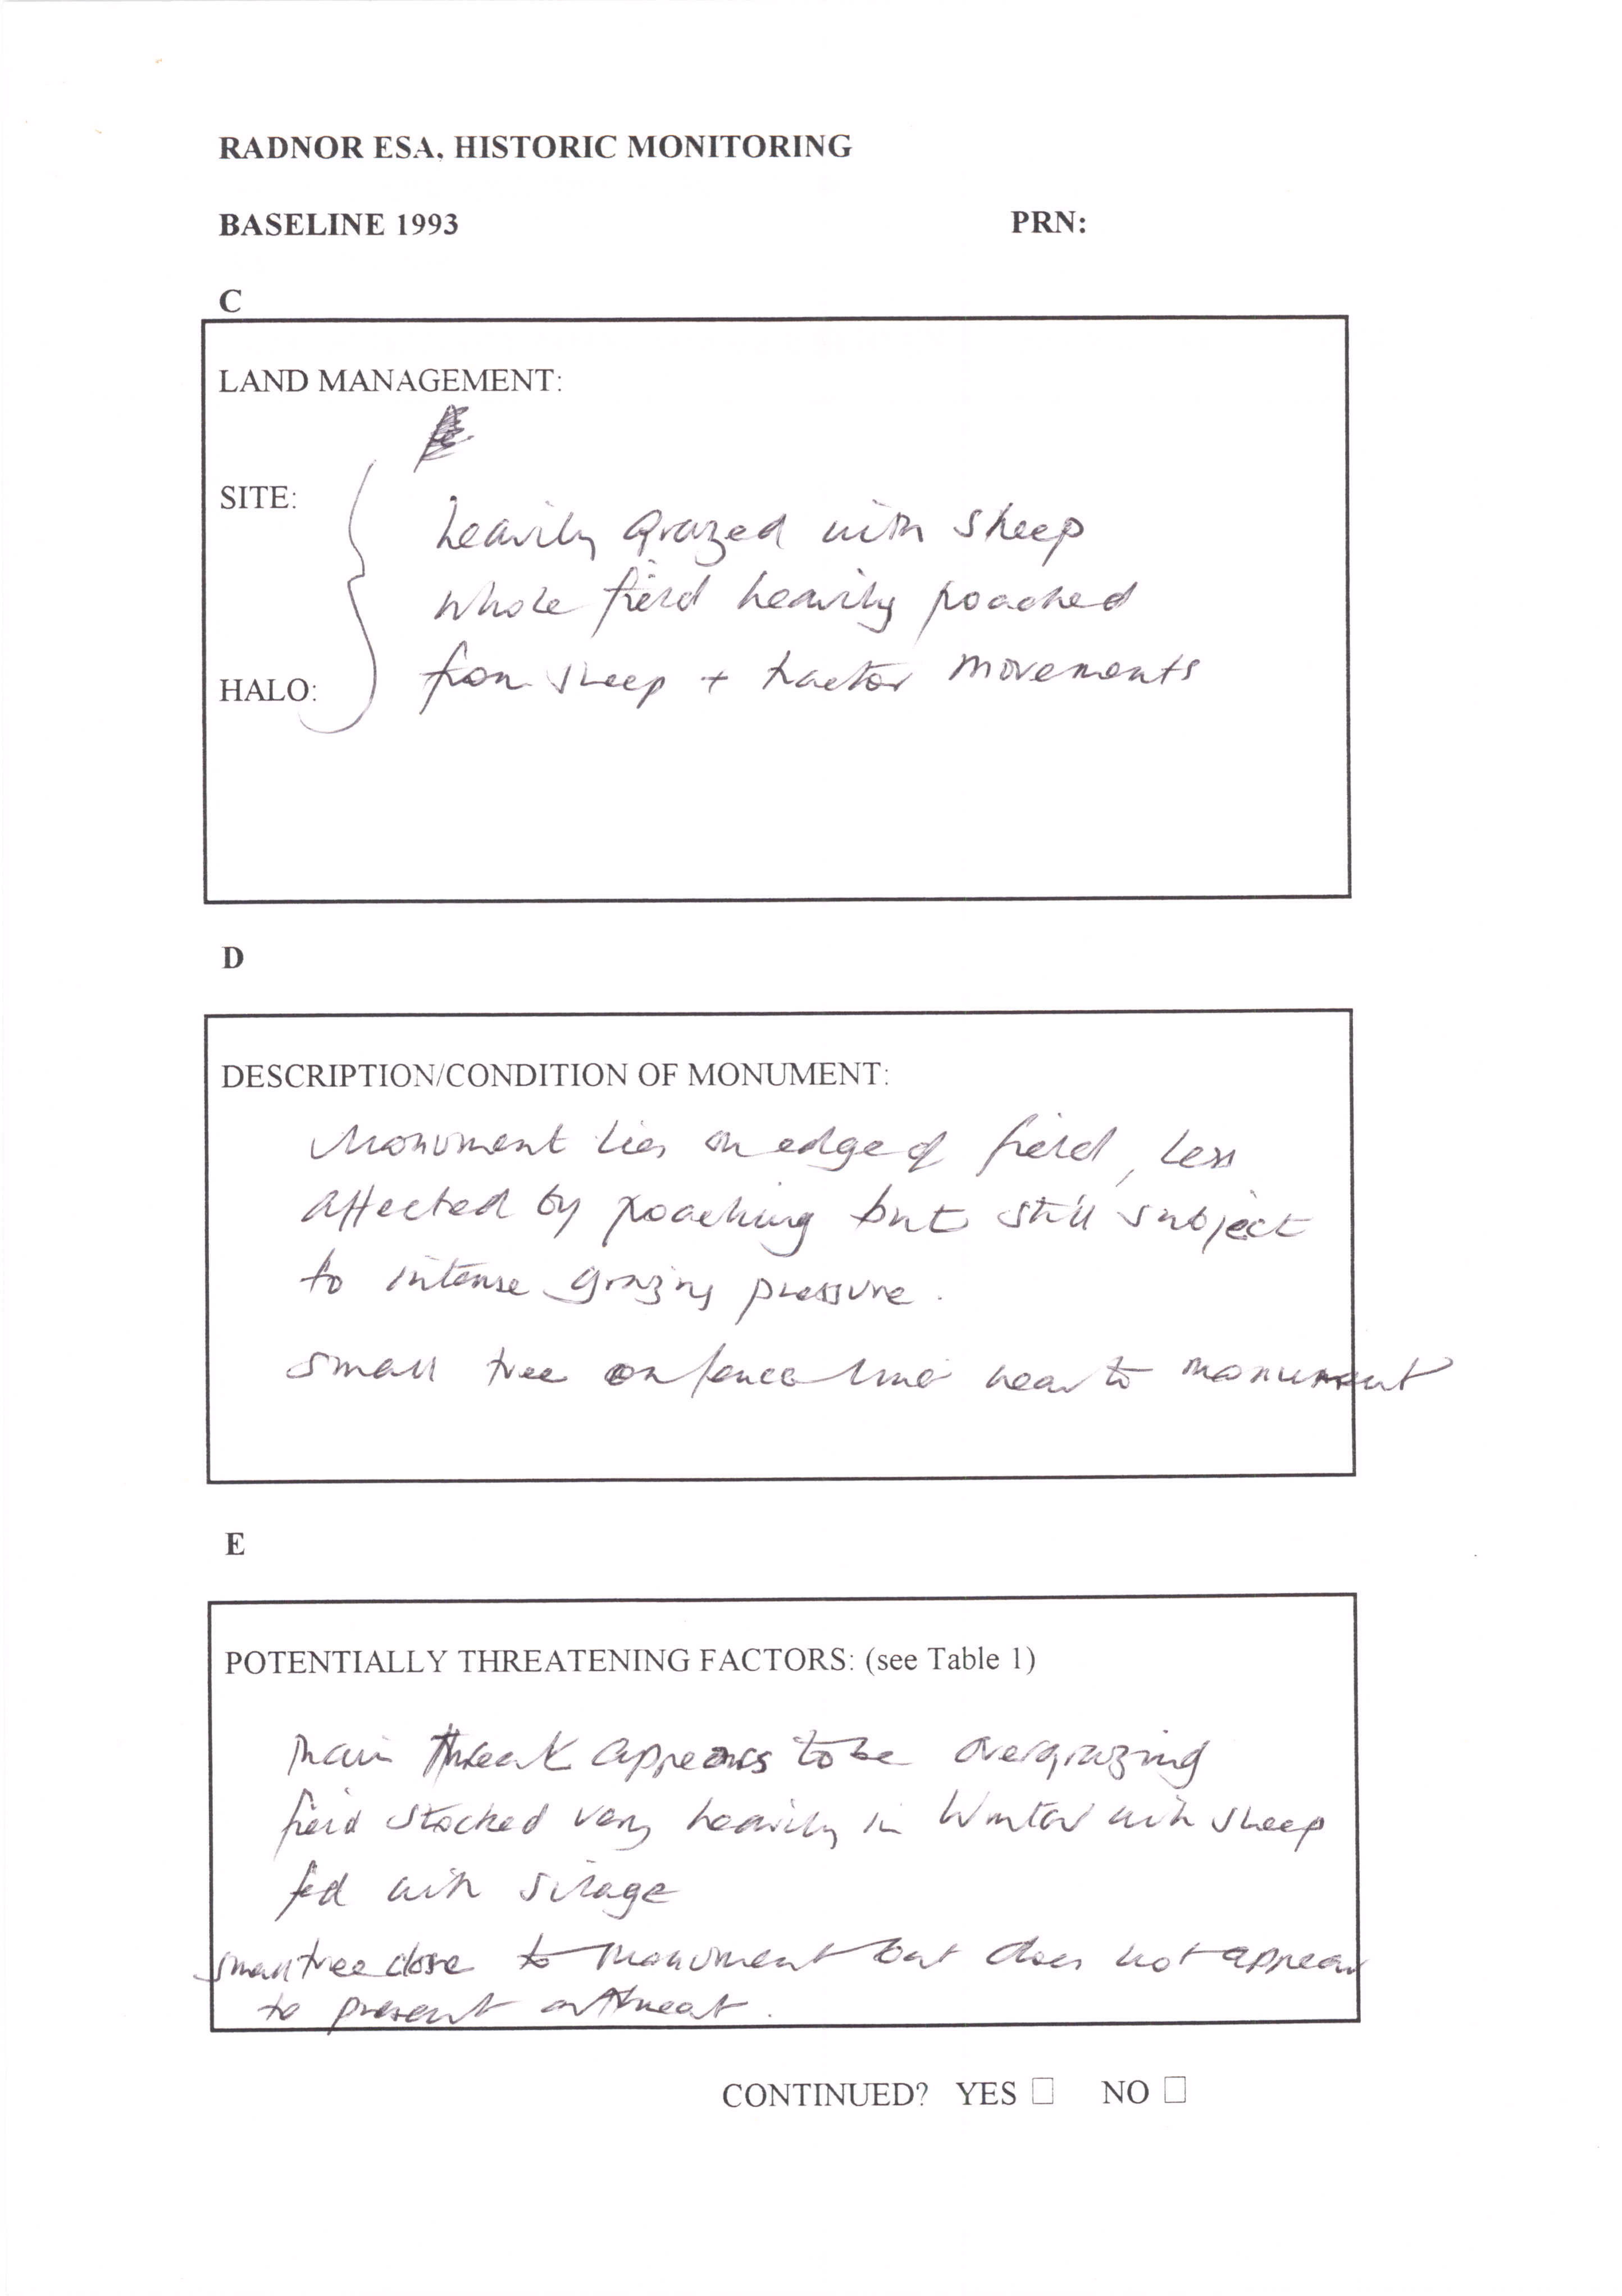 RADNOR ESA. HISTORIC MONITORING
BASELINE 1993 PRN:
C
LAND MANAGEMENT:
SITE:
heavily grazed with sheep
whole field heavily poached
HALO:
from sheep + tractor movements
D
DESCRIPTION/CONDITION OF MONUMENT:
Monument lies on edge of field, less
affected by poaching but still subject
to intense grazing pressure.
small tree on fence line near to monument
E
POTENTIALLY THREATENING FACTORS: (see Table 1)
main threat appears to be overgrazing
field stocked very heavily in Winter with sheep
fed with silage
small tree close to monument but does not appear
to present a threat.
CONTINUED? YES ☐ NO ☐